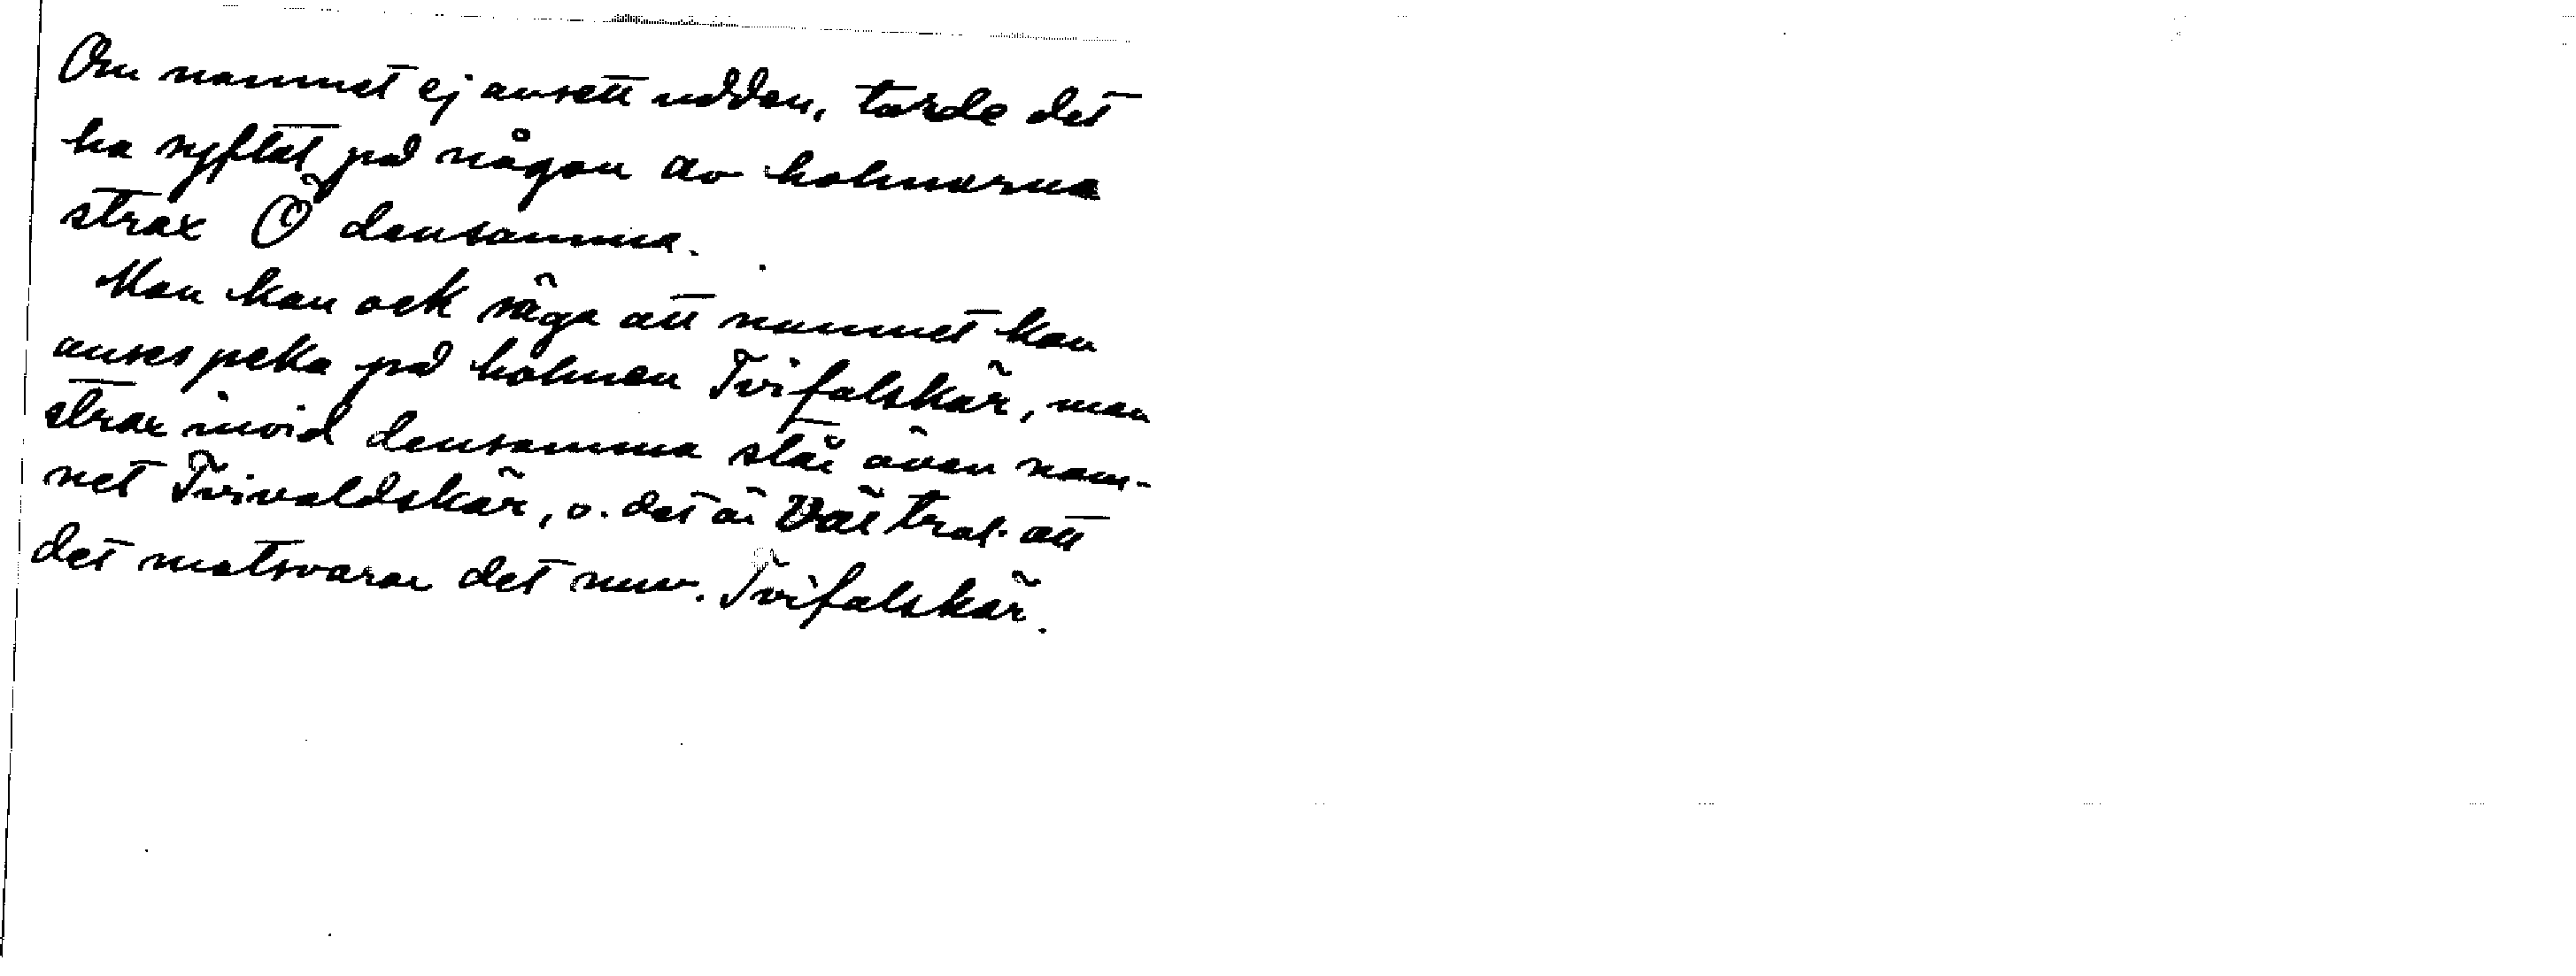 Om namnet ej ansett udden, torde det
ha syftat på någon av holmarna
strax Ö densamma.
Man kan ock säga att namnet kan
anses peka på holmen Tvifalskär, men
strax invid densamma står även nam-
net Tvivaldskär, o. det är väl trol. att
det motsvarar det nuv. Tvifalskär.